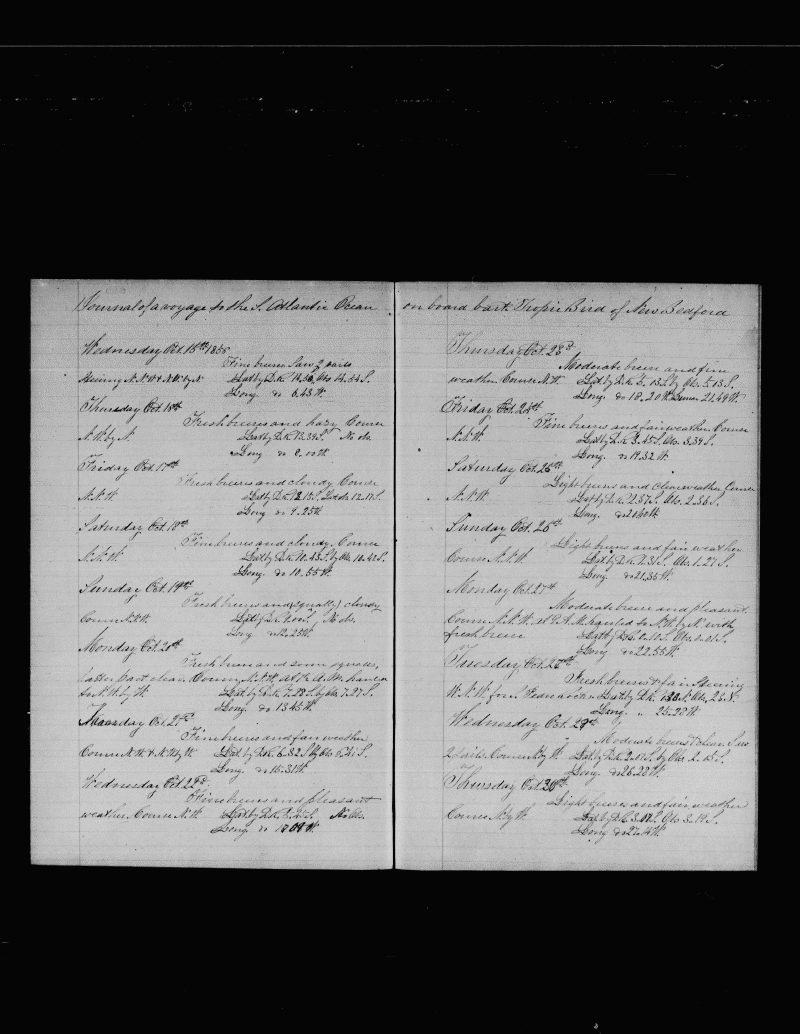 Journal of a voyage to the S. Atlantic Ocean
Wednesday Oct. 15th 1856
Fine breeze Saw 2 sails
Steering N.N.W & N.W. by N Lat by D.R. 14.30 Obs 14.34 S.
Long do 6.43 W.
Thursday Oct. 16th
Fresh breeze and hazy Course
N.W. by N Lat by D.R. 13.39 S. No obs.
Long do W.
Friday Oct. 17th
Fresh breeze and cloudy Course
N.N.W Lat by D.R. 12.15 S. 12.11 S.
Long do 9.25 W.
Saturday Oct. 18th
Fine breeze and cloudy. Course
N.N.W. Lat by D.R. 10.43 S. by Obs. 10.42 S.
Long. do 10.55 W.
Sunday Oct. 19th
Fresh breeze and (squally) cloudy
Course N.N.W. Lat by D.R. S. No obs.
Long do 12.25 W.
Monday Oct. 20th
Fresh breeze and some squalls,
latter part clear. Course N.N.W. At A.M. hauled
to N.W. by W. Lat by D.R. 7.28 S. by Obs. 7.27 S.
Long. do 13.45 W.
Tuesday Oct. 21st
Fine breeze and fair weather
Course N.W. & N.W. by W. Lat. by D.R. 6.32 S. by Obs. S.
Long. do 15.31 W.
Wednesday Oct. 22d
Fine breeze and pleasant
weather. Course N.W. Lat by D.R. S. No Obs.
Long do W.
on board bark Tropic Bird of New Bedford
Thursday Oct. 23d
Moderate breeze and fine
weather. Course N.W. Lat by D.R. 5.13 S. by Obs. 5.13 S.
Long. do 18.20 W. 21.49 W.
Friday Oct. 24th
Fine breeze and fair weather. Course
N.N.W. Lat by D.R. 3.45 S. Obs. 3.39 S.
Long. do 19.32 W.
Saturday Oct. 25th
Light breeze and clear weather. Course
N.N.W. Lat by D.R. 2.37 S. Obs. 2.36 S.
Long. do W.
Sunday Oct. 26th
Light breeze and fair weather
Course N.N.W. Lat by D.R. 1.31 S. Obs. 1.27 S.
Long. do 21.35 W.
Monday Oct. 27th
Moderate breeze and pleasant.
Course N.N.W. at P.M. hauled to N.W. by N. with
fresh breeze Lat by D.R. 0.10 S. Obs. 0.01 S.
Long. do 22.55 W.
Tuesday Oct. 28th
Fresh breeze & fair Steering
W.N.W. for Lat by D.R. N. Obs. N.
Long. " 25.28 W.
Wednesday Oct. 29th
Moderate breeze & clear. Saw
2 sails. Course by W. Lat. by D.R. S. by Obs. 2.15 S.
Long. do 26.28 W.
Thursday Oct. 30th
Light breeze and fair weather
Course by W. Lat by D.R. S. Obs. 3.19 S.
Long do W.